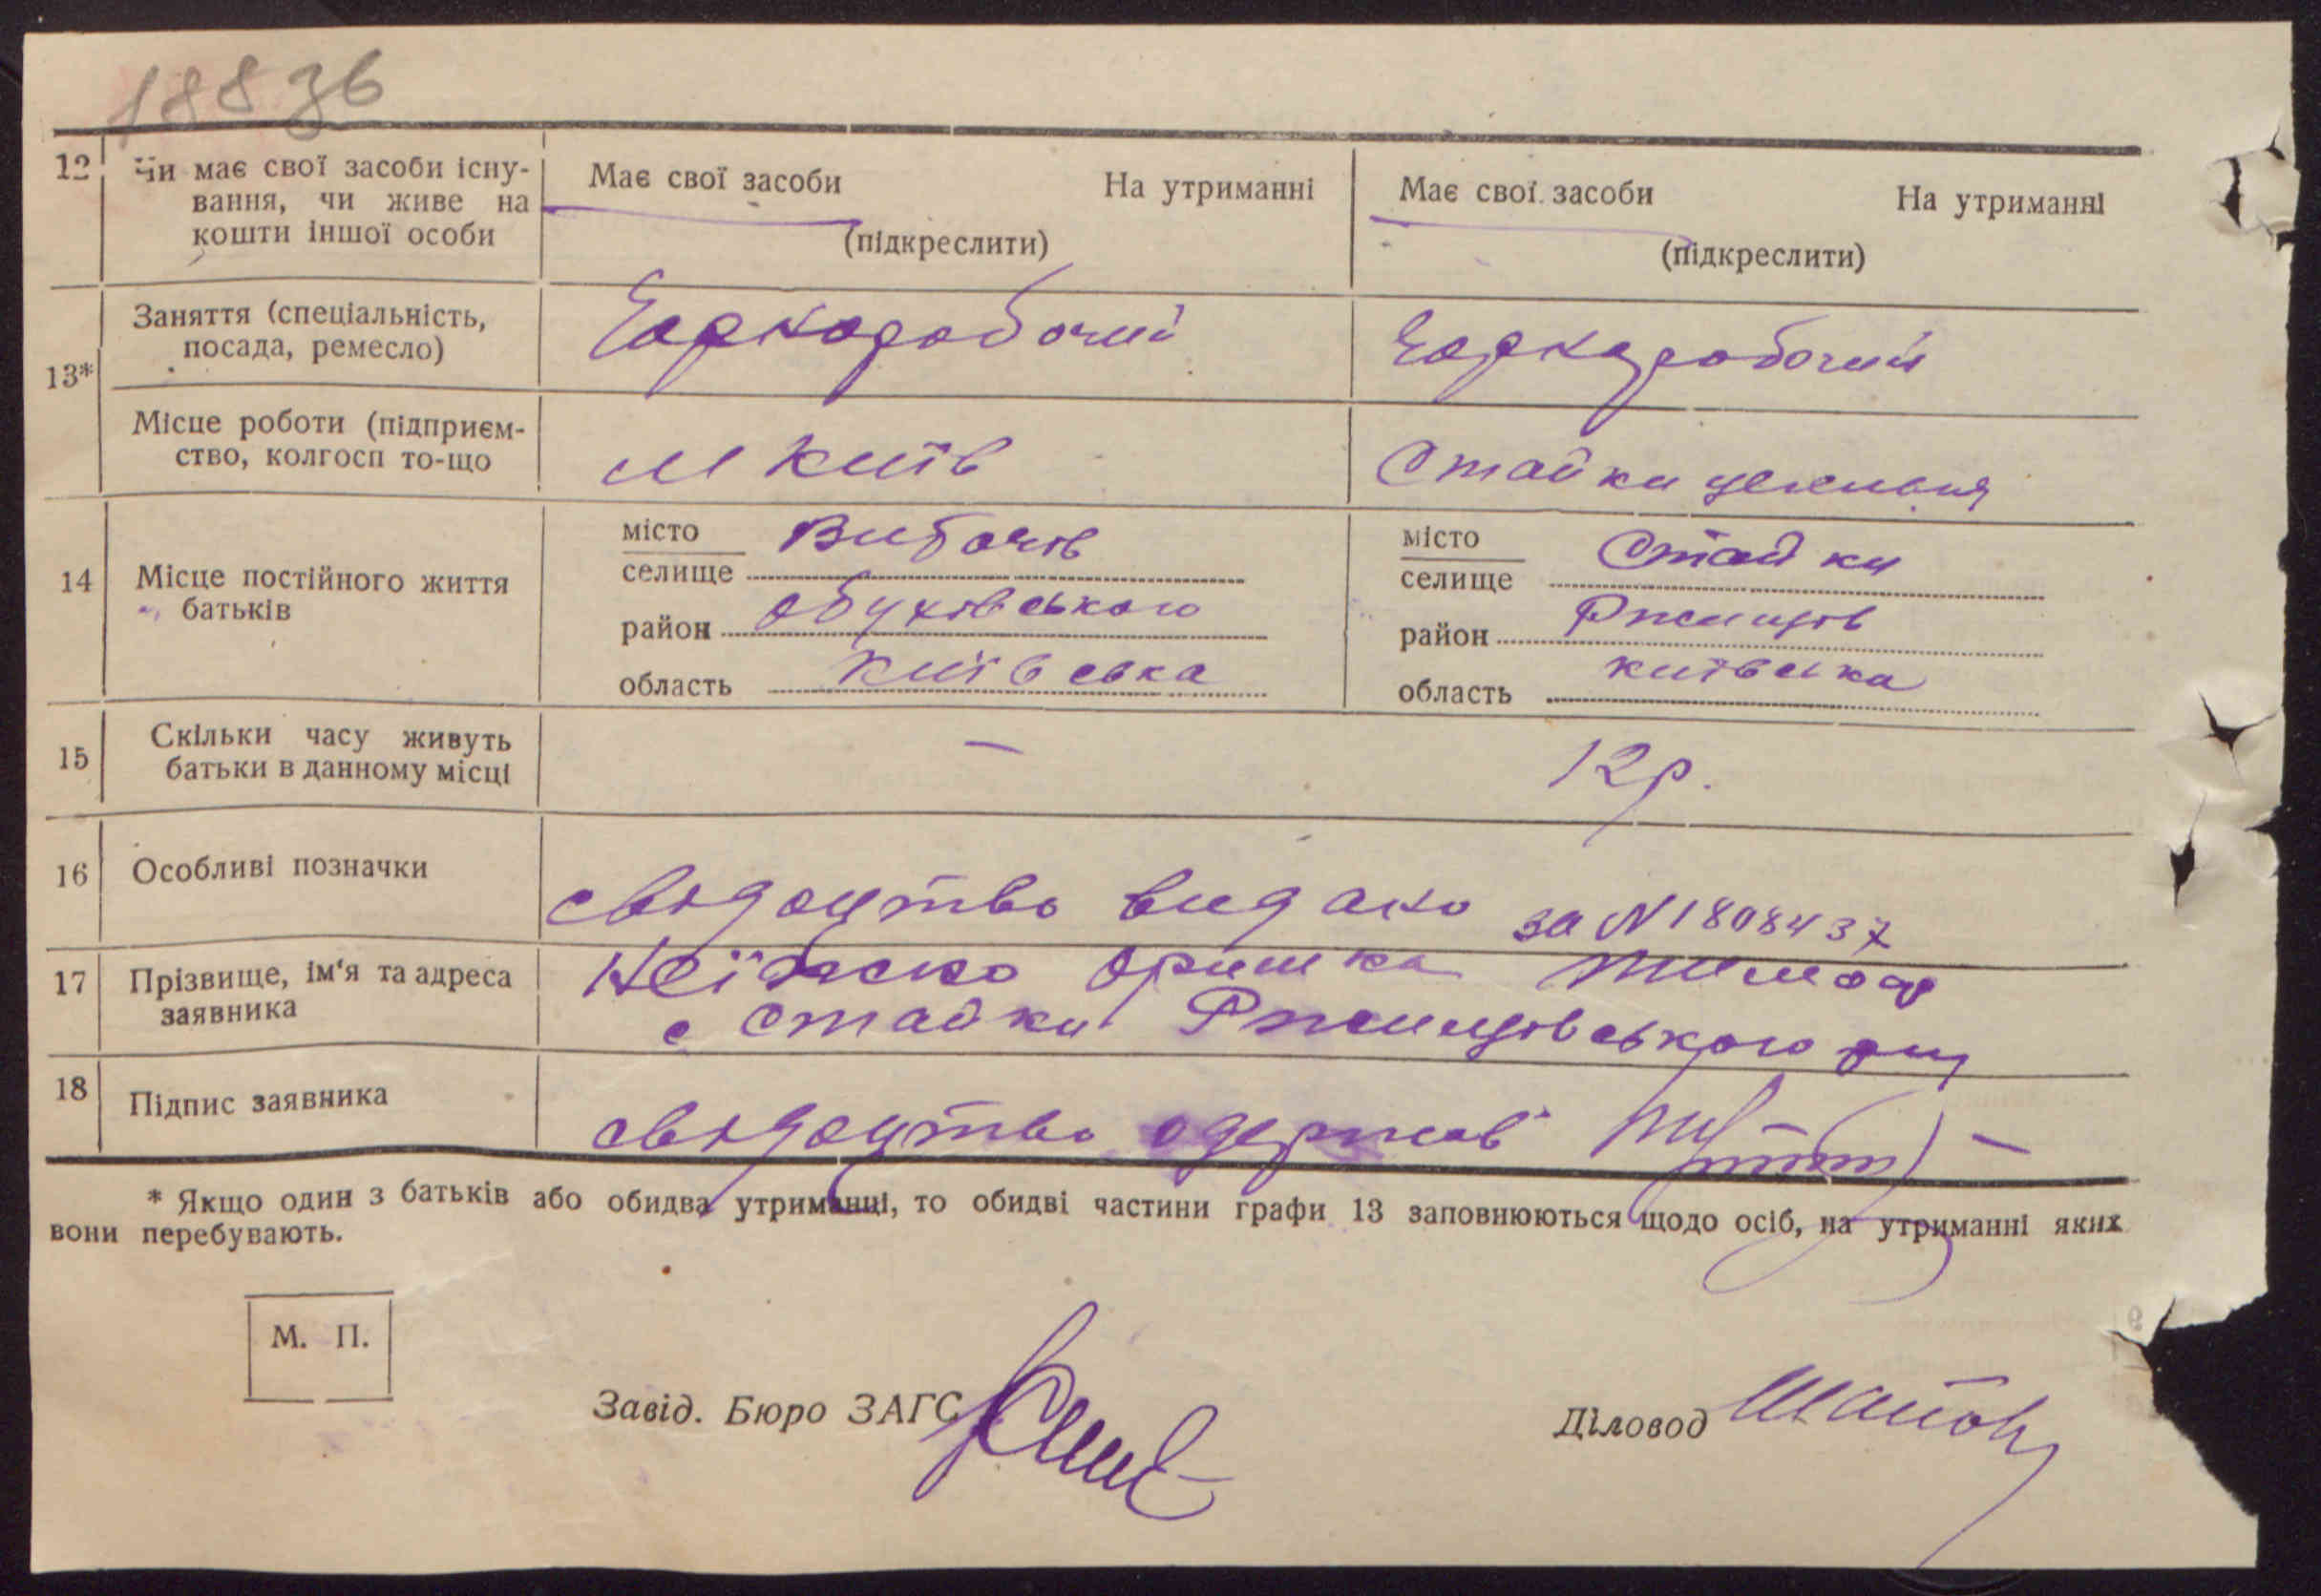 18836
12 Чи має свої засоби існу-
вання, чи живе на
кошти іншої особи
Має свої засоби На утриманні
(підкреслити)
Має свої засоби На утриманні
(підкреслити)
13*
Заняття (спеціальність,
посада, ремесло)
Чорноробочий
Чорноробочий
Місце роботи (підприєм-
ство, колгосп то-що
м Київ
Стайки
14 Місце постійного життя
батьків
місто
селище Витачів
район Обухівського
область Київська
місто
селище Стайки
район Ржищів
область Київська
15 Скільки часу живуть
батьки в данному місці
—
12 р.
16 Особливі позначки
свідоцтво видано за N 1808437
17 Прізвище, ім'я та адреса
заявника
Оришка Тимоф
с Стайки Ржищівського
18 Підпис заявника
свідоцтво одержав
* Якщо один з батьків або обидва утриманці, то обидві частини графи 13 заповнюються щодо осіб, на утриманні яких
вони перебувають.
М. П.
Завід. Бюро ЗАГС
Діловод